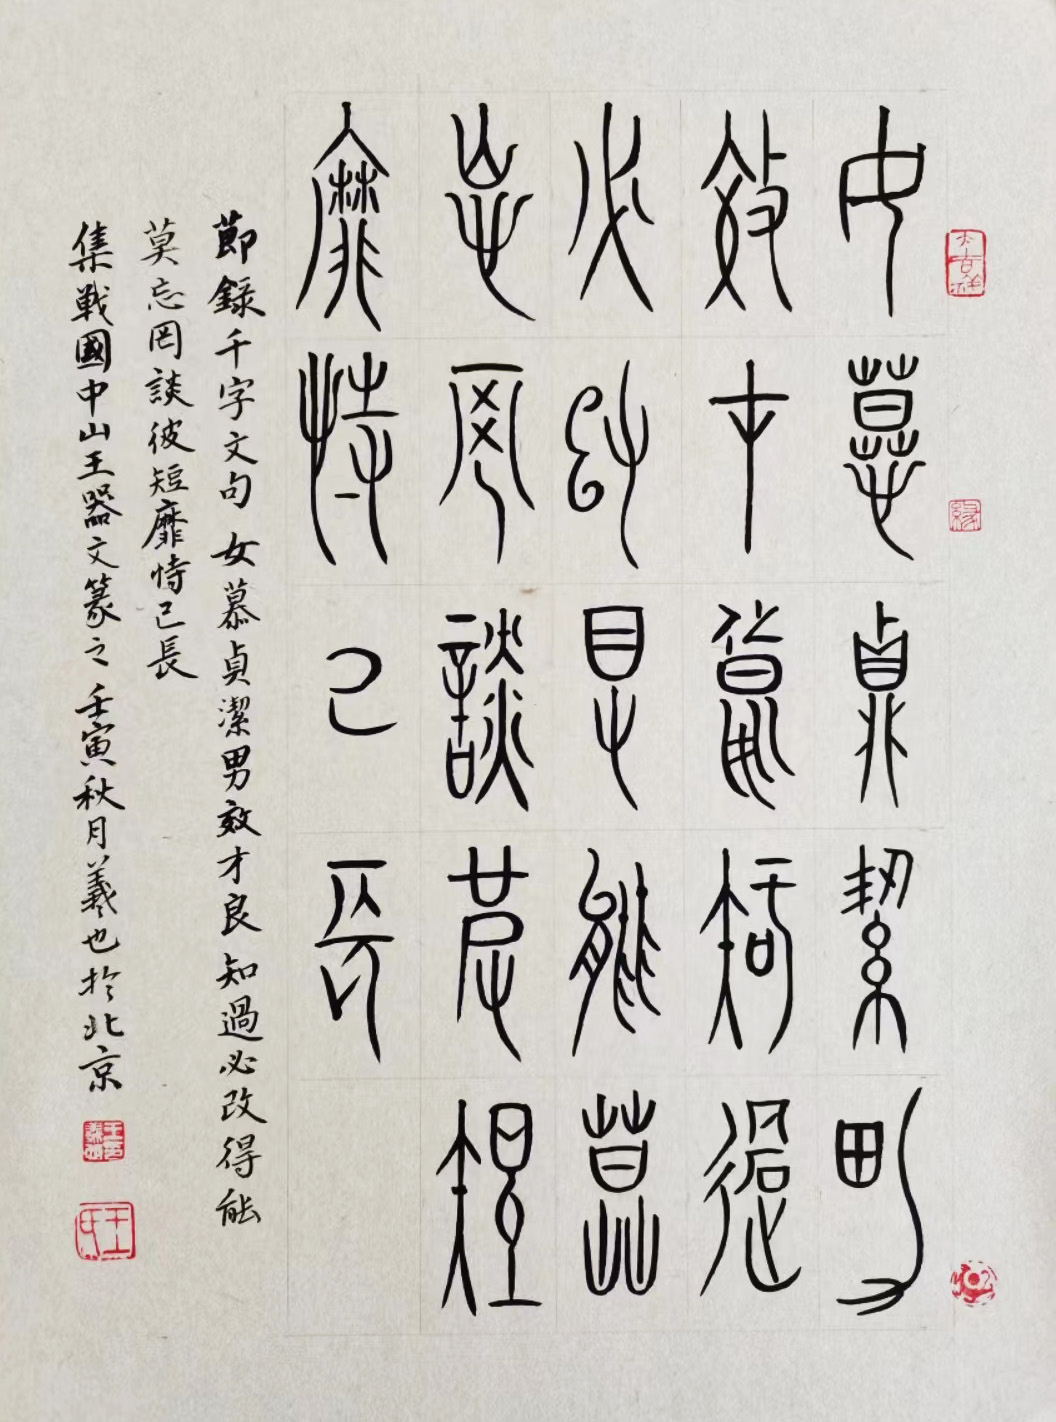 女慕貞絜男
效才良知過
必改得能莫
忘罔談彼短
靡恃己長
節録千字文句 女慕貞潔男效才良知過必改得能
莫忘罔談彼短靡恃己長
集戰國中山王器文篆之 壬寅秋月羲也於北京
大吉祥
緣
王氏